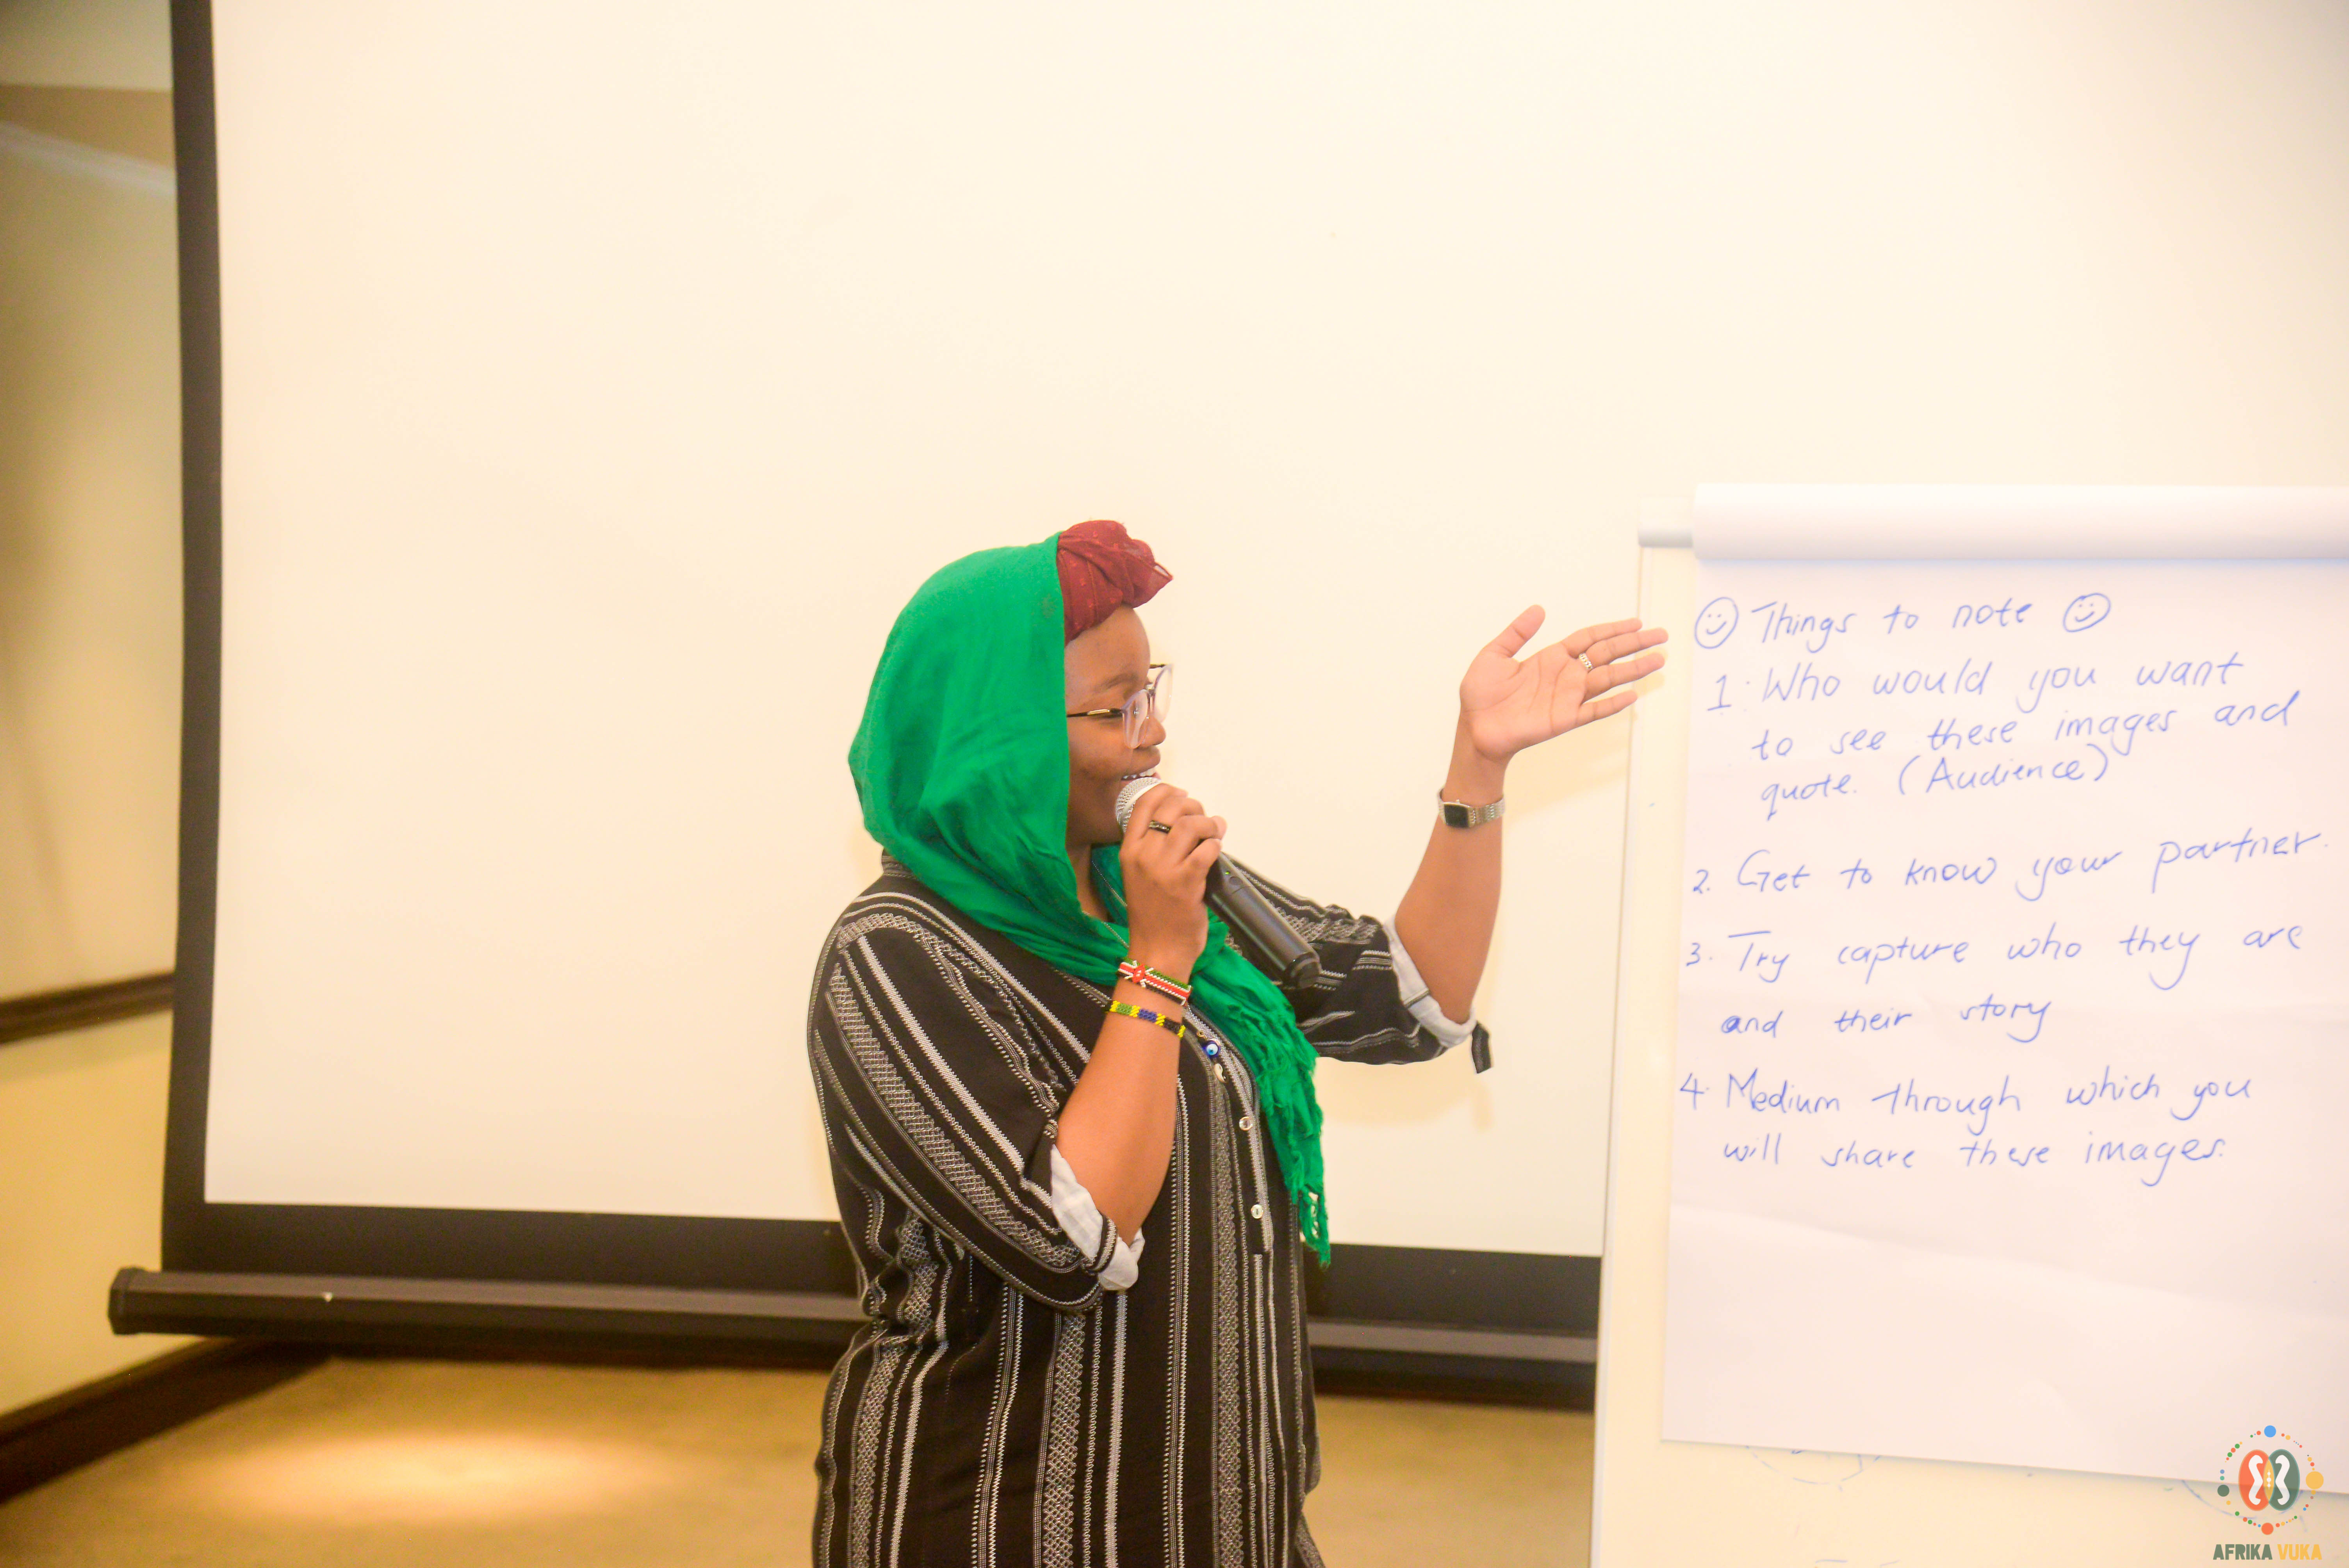 Things to note
1. Who would you want
to see these images and
quote. (Audience)
2. Get to know your partner.
3. Try capture who they are
and their story
4. Medium through which you
will share these images.
AFRIKA VUKA